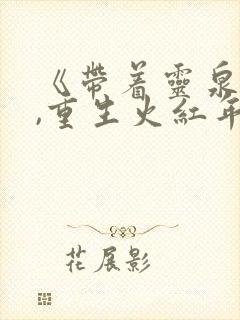 《带着靈泉
,重生火紅年
花展影